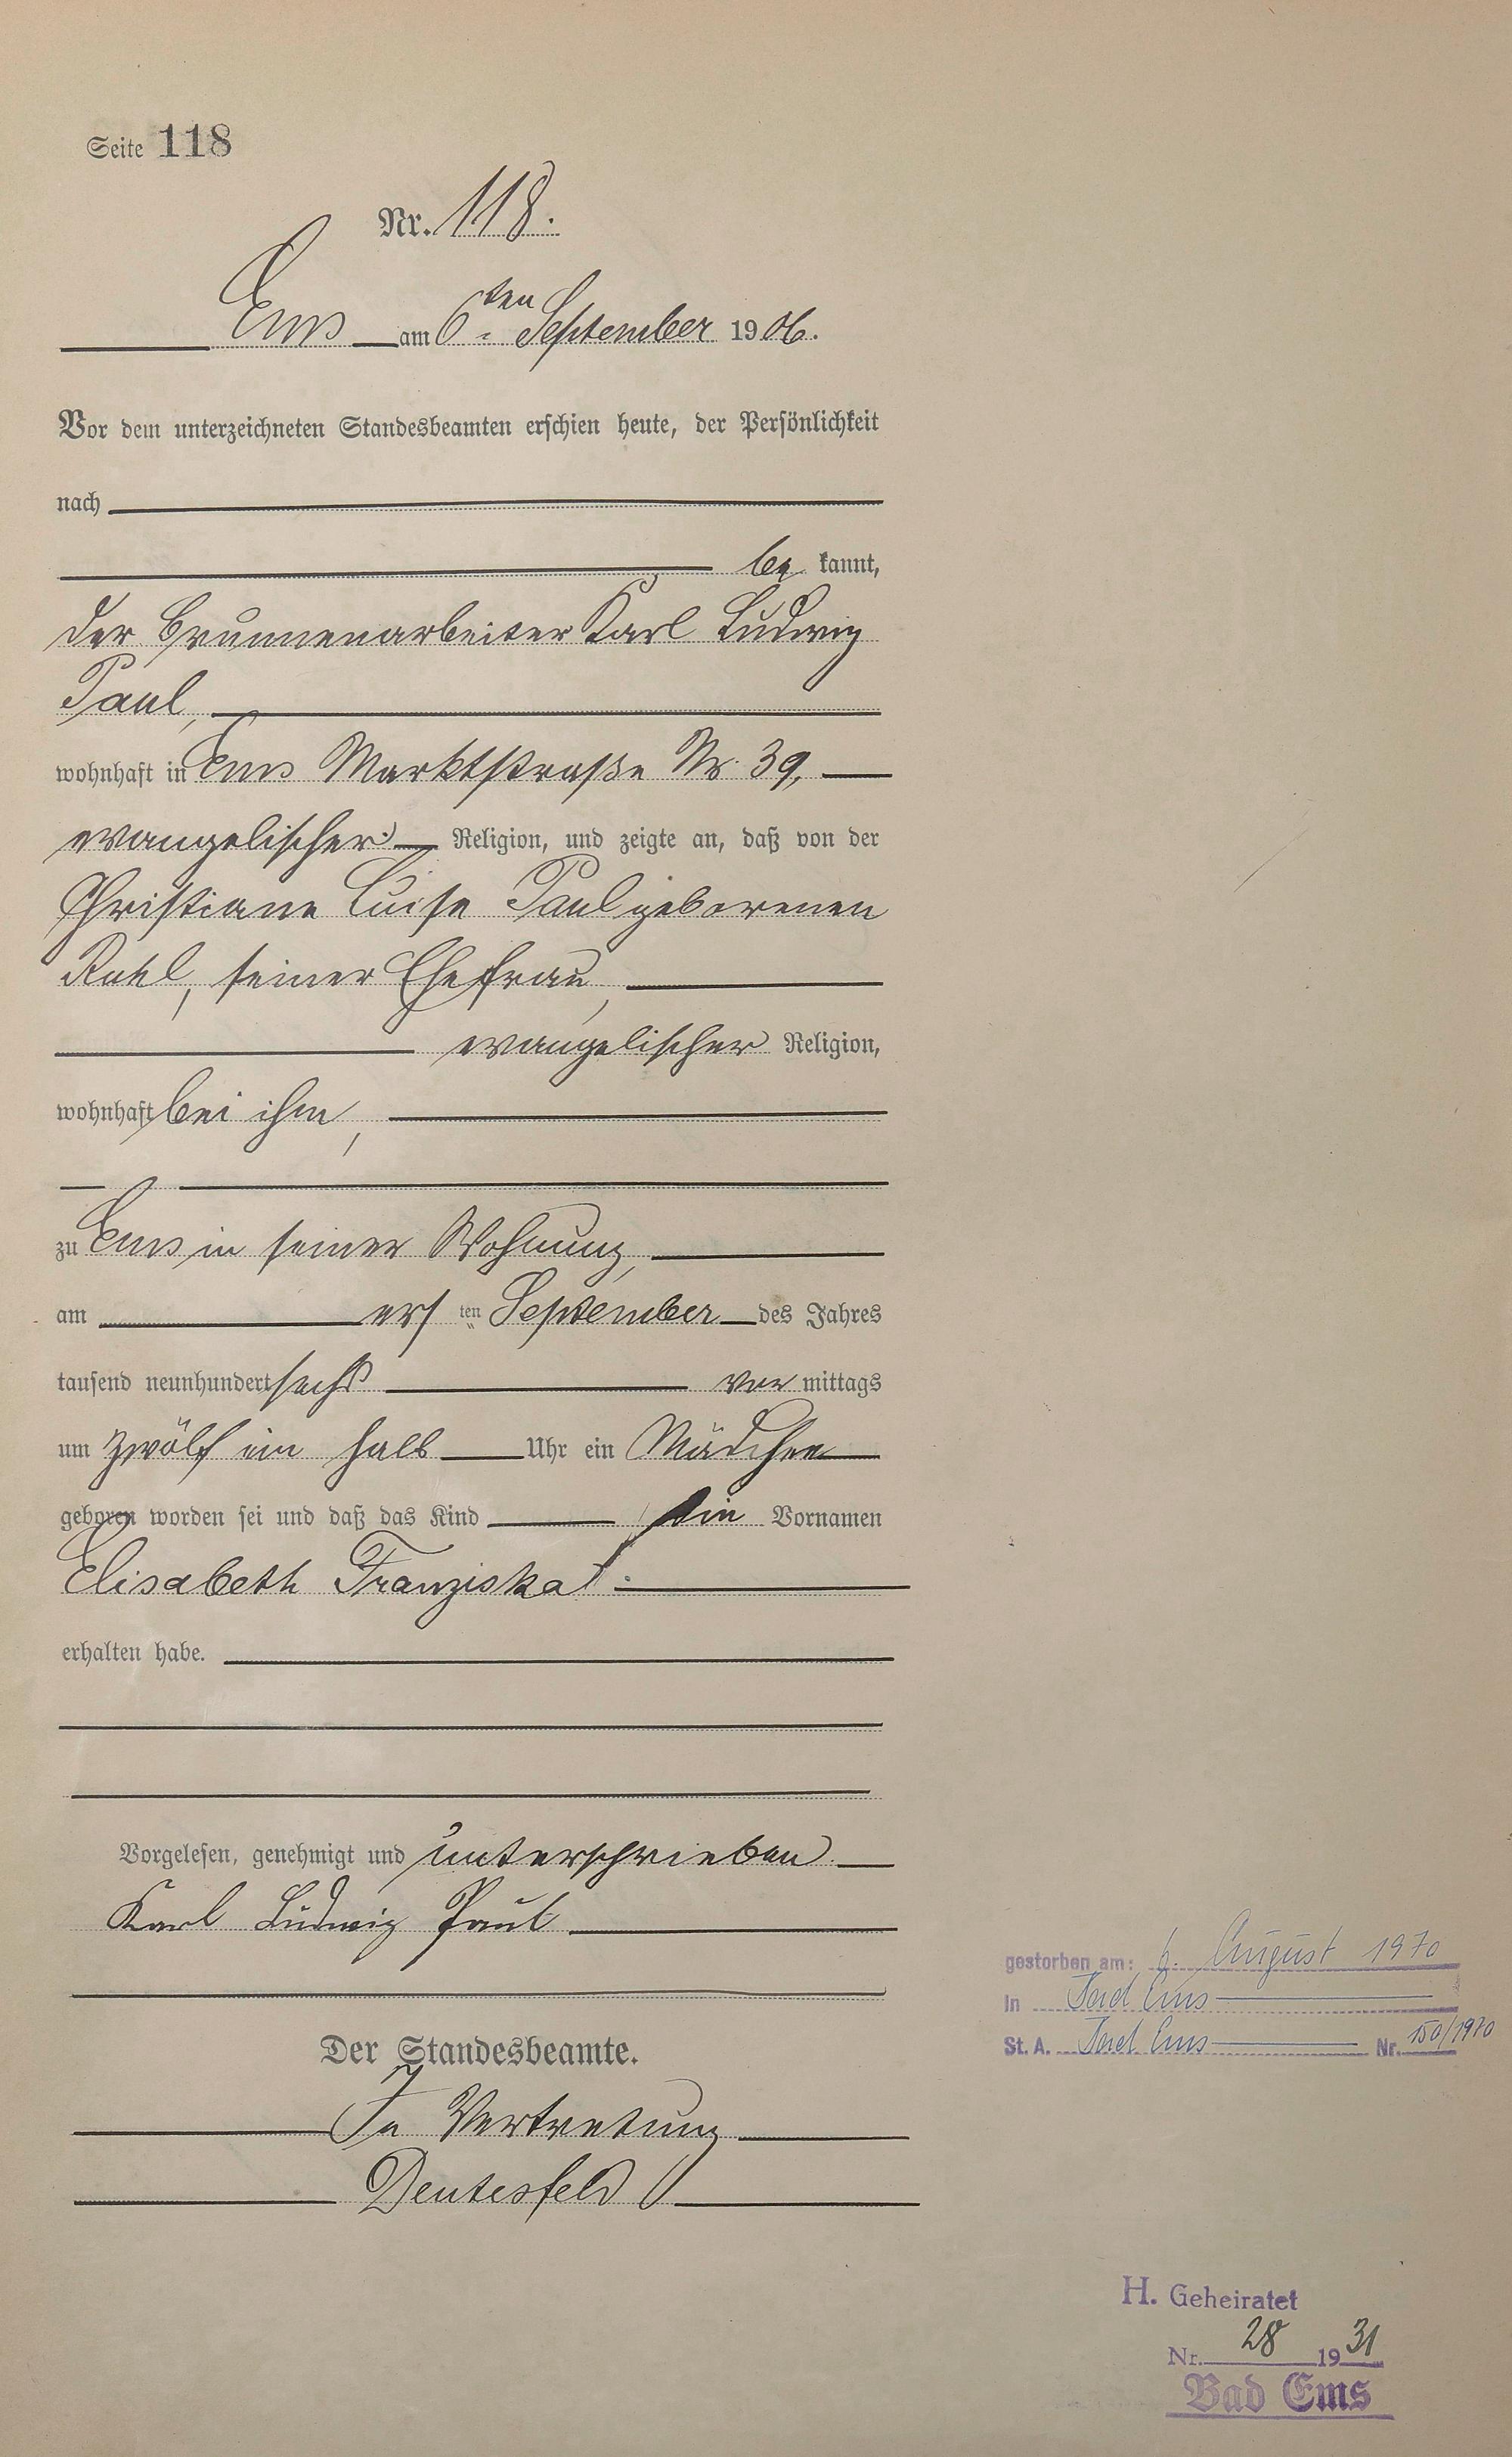 Seite 118
Nr. 118.
Ems am 6ten September 1906.
Vor dem unterzeichneten Standesbeamten erschien heute, der Persönlichkeit
nach
be kannt,
der Brunnenarbeiter Karl Ludwig
Paul,
wohnhaft in Ems Marktstraße Nr. 39,
evangelischer Religion, und zeigte an, daß von der
Christiane Luise Paul geborenen
Ruhl, seiner Ehefrau,
evangelischer Religion,
wohnhaft bei ihm,
zu Ems in seiner Wohnung,
am ersten September des Jahres
tausend neunhundert sechs vor mittags
um zwölf ein halb Uhr ein Mädchen
geboren worden sei und daß das Kind die Vornamen
Elisabeth Franziska
erhalten habe.
Vorgelesen, genehmigt und unterschrieben
Karl Ludwig Paul
Der Standesbeamte.
In Vertretung
Deutesfeld
gestorben am: 6. August 1970
In Bad Ems
St. A. Bad Ems Nr. 150/1970
H. Geheiratet
Nr. 28 1931
Bad Ems